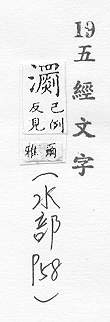 19五經文字
瀱
己例
反見
爾
雅
(水部
P58)